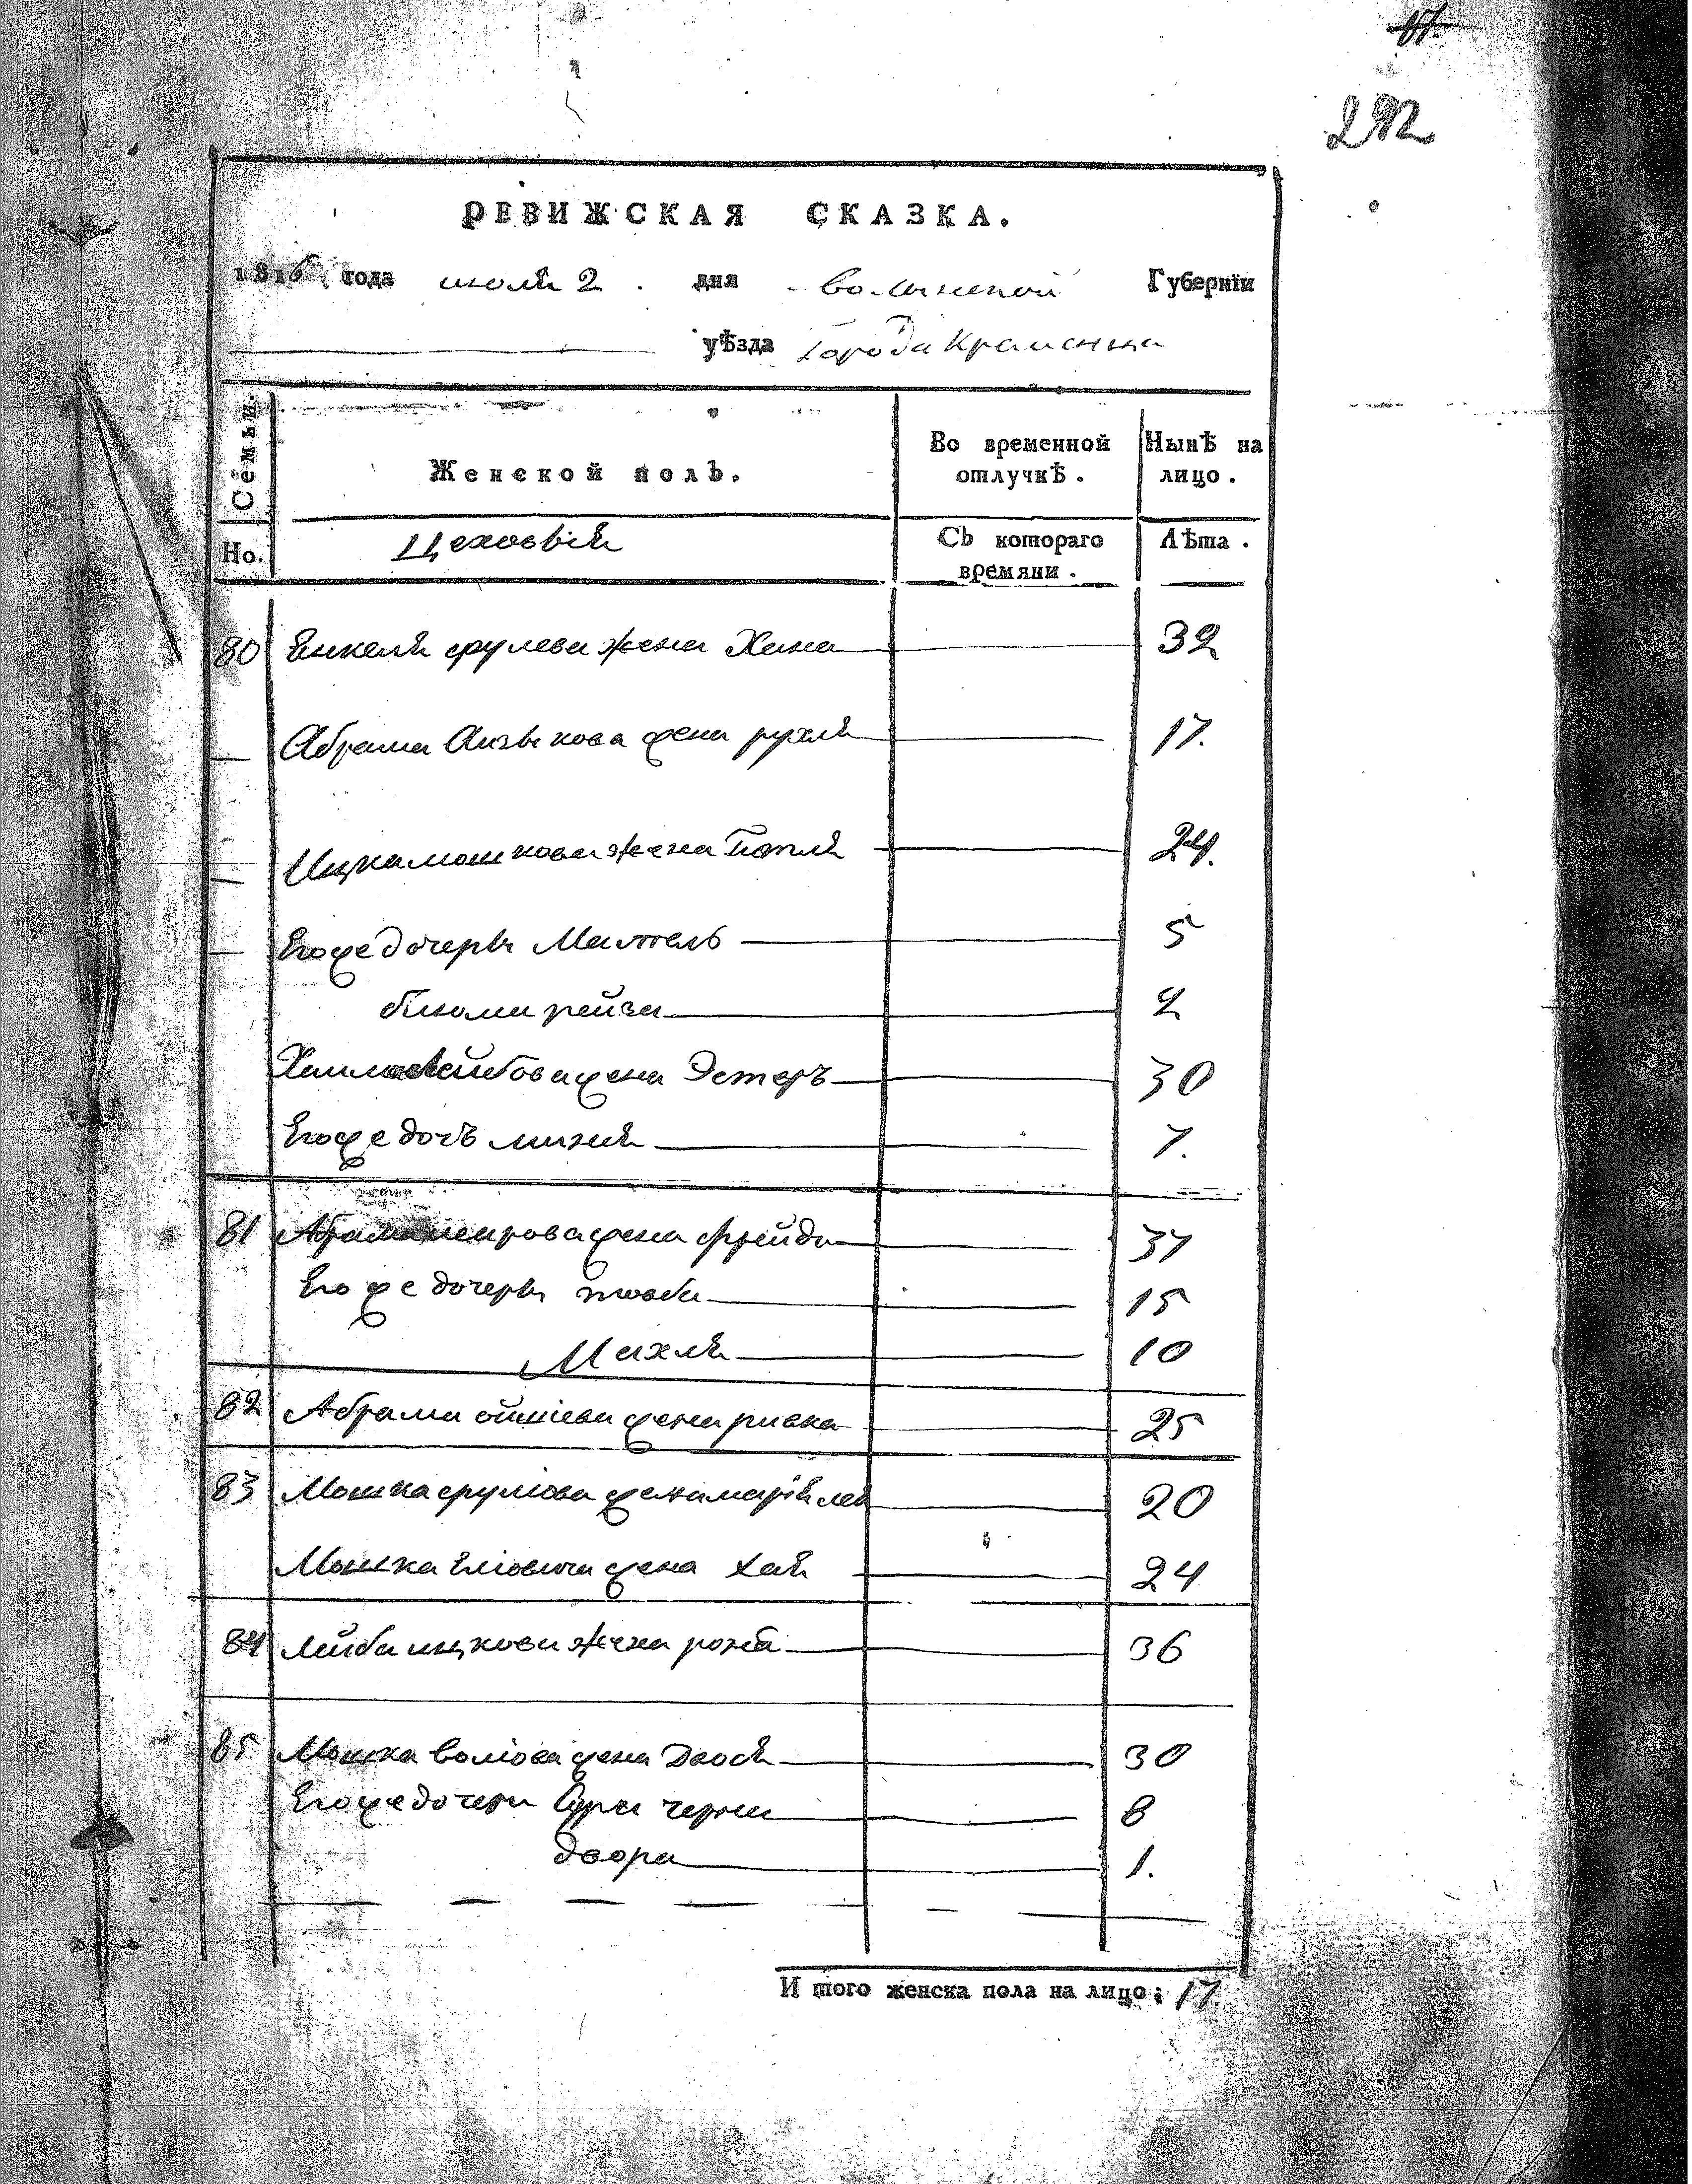 17.
292
РЕВИЖСКАЯ СКАЗКА.
1816 года июля 2 дня Волынской Губернїи
уѣзда города Кременца
Семьи.
Женской полъ.
Во временной отлучкѣ.
Нынѣ на лицо.
Но.
Цеховыя
Съ котораго времяни.
Лѣта.
80 Янкеля срулева жена Хана 32
Абрама жена рухля 17.
Ицка мошкова жена 24.
Его же дочеры Мантель 5
рейза 2
Хаима лейбова жена Эстеръ 30
Его же дочъ 7.
81 Абрама меирова жена фрейда 37
Его же дочеры тоба 15
Махля 10
82 Абрама жена ривка 25
83 Мошка срулiова жена марiя лея 20
Мошка елiовича жена хая 24
84 лейба ицкова жена 36
85 Мошка волiова жена Двося 30
Его же дочери Сура черна 8
двора 1.
И того женска пола на лицо; 17.